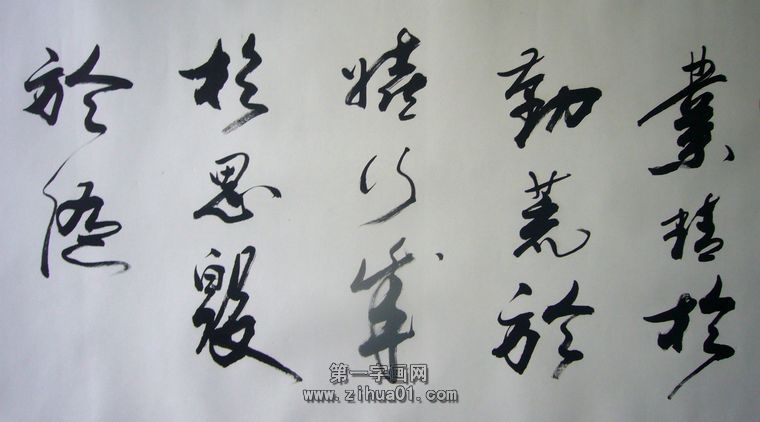 業精於
勤荒於
嬉行成
於思毀
於隨
第一字画网
www.zihua01.com